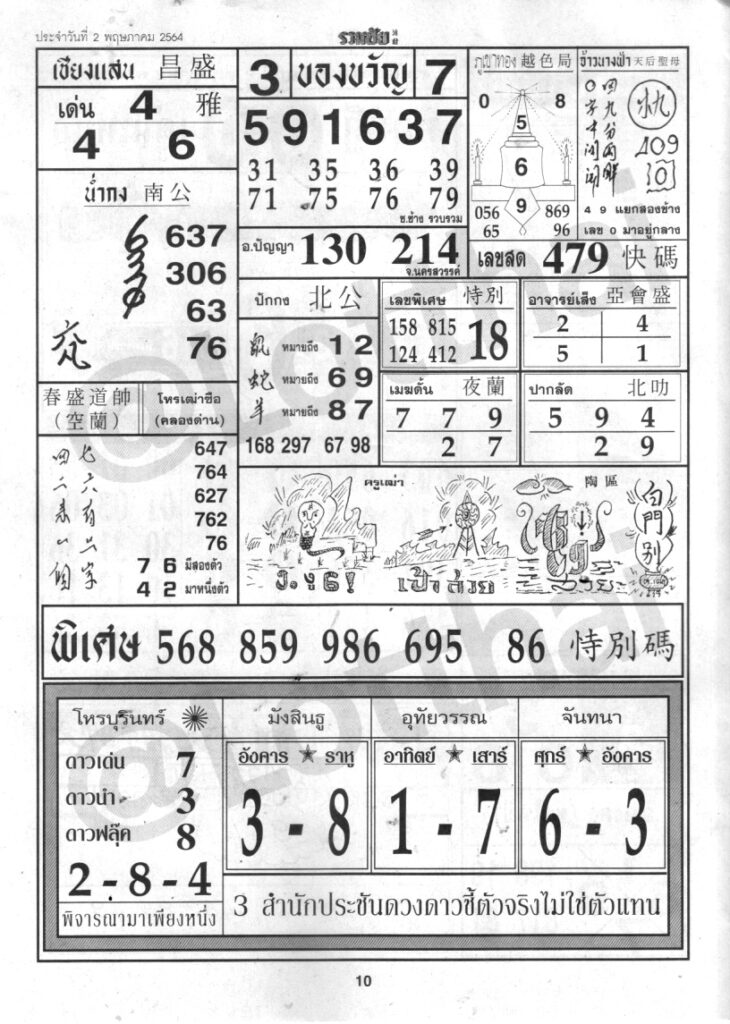 ประจำวันที่ 2 พฤษภาคม 2564
รวมชัย
เชียงแสน 昌盛
เด่น 4 雅
4 6
น่ำกง 南公
637
306
63
76
春盛道帥
(空蘭)
โหรเฒ่าซือ
(คลองด่าน)
四七
二六
647
764
627
762
76
7 6 มีสองตัว
4 2 มาหนึ่งตัว
3 ของขวัญ 7
591637
31 35 36 39
71 75 76 79
ช.ช้าง รวบรวม
อ.ปัญญา 130 214
จ.นครสวรรค์
ปักกง 北公
鼠 หมายถึง 1 2
蛇 หมายถึง 6 9
羊 หมายถึง 8 7
168 297 67 98
ภูเขาทอง 越色局
0 8
5
6
9
056 869
65 96
จ้าวนางฟ้า 天后聖母
409
0
4 9 แยกสองข้าง
เลข 0 มาอยู่กลาง
เลขสด 479 快碼
เลขพิเศษ 恃別
158 815
124 412
18
อาจารย์เส็ง 亞會盛
2 4
5 1
เมฆดั้น 夜蘭
7 7 9
2 7
ปากลัด 北叻
5 9 4
2 9
ครูเฒ่า 陶區
ง.งู 6!
เป้าสวย
白門別
พิเศษ 568 859 986 695 86 恃別碼
โหรบุรินทร์
ดาวเด่น 7
ดาวนำ 3
ดาวฟลุ๊ค 8
2-8-4
พิจารณามาเพียงหนึ่ง
มังสินธู
อังคาร ★ ราหู
3 - 8
อุทัยวรรณ
อาทิตย์ ★ เสาร์
1 - 7
จันทนา
ศุกร์ ★ อังคาร
6 - 3
3 สำนักประชันดวงดาวชี้ตัวจริงไม่ใช่ตัวแทน
10
@Lotthai
@Lotthai